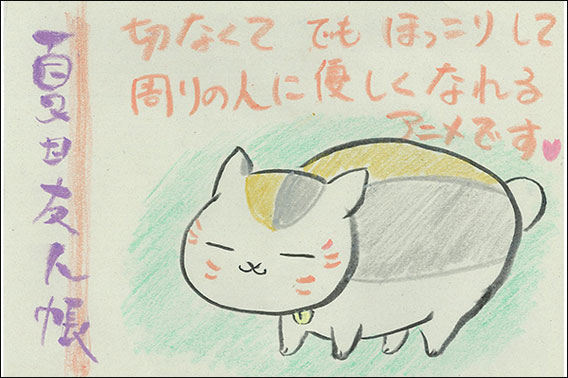 切なくて でも ほっこりして
周りの人に優しくなれる
アニメです
夏目友人帳